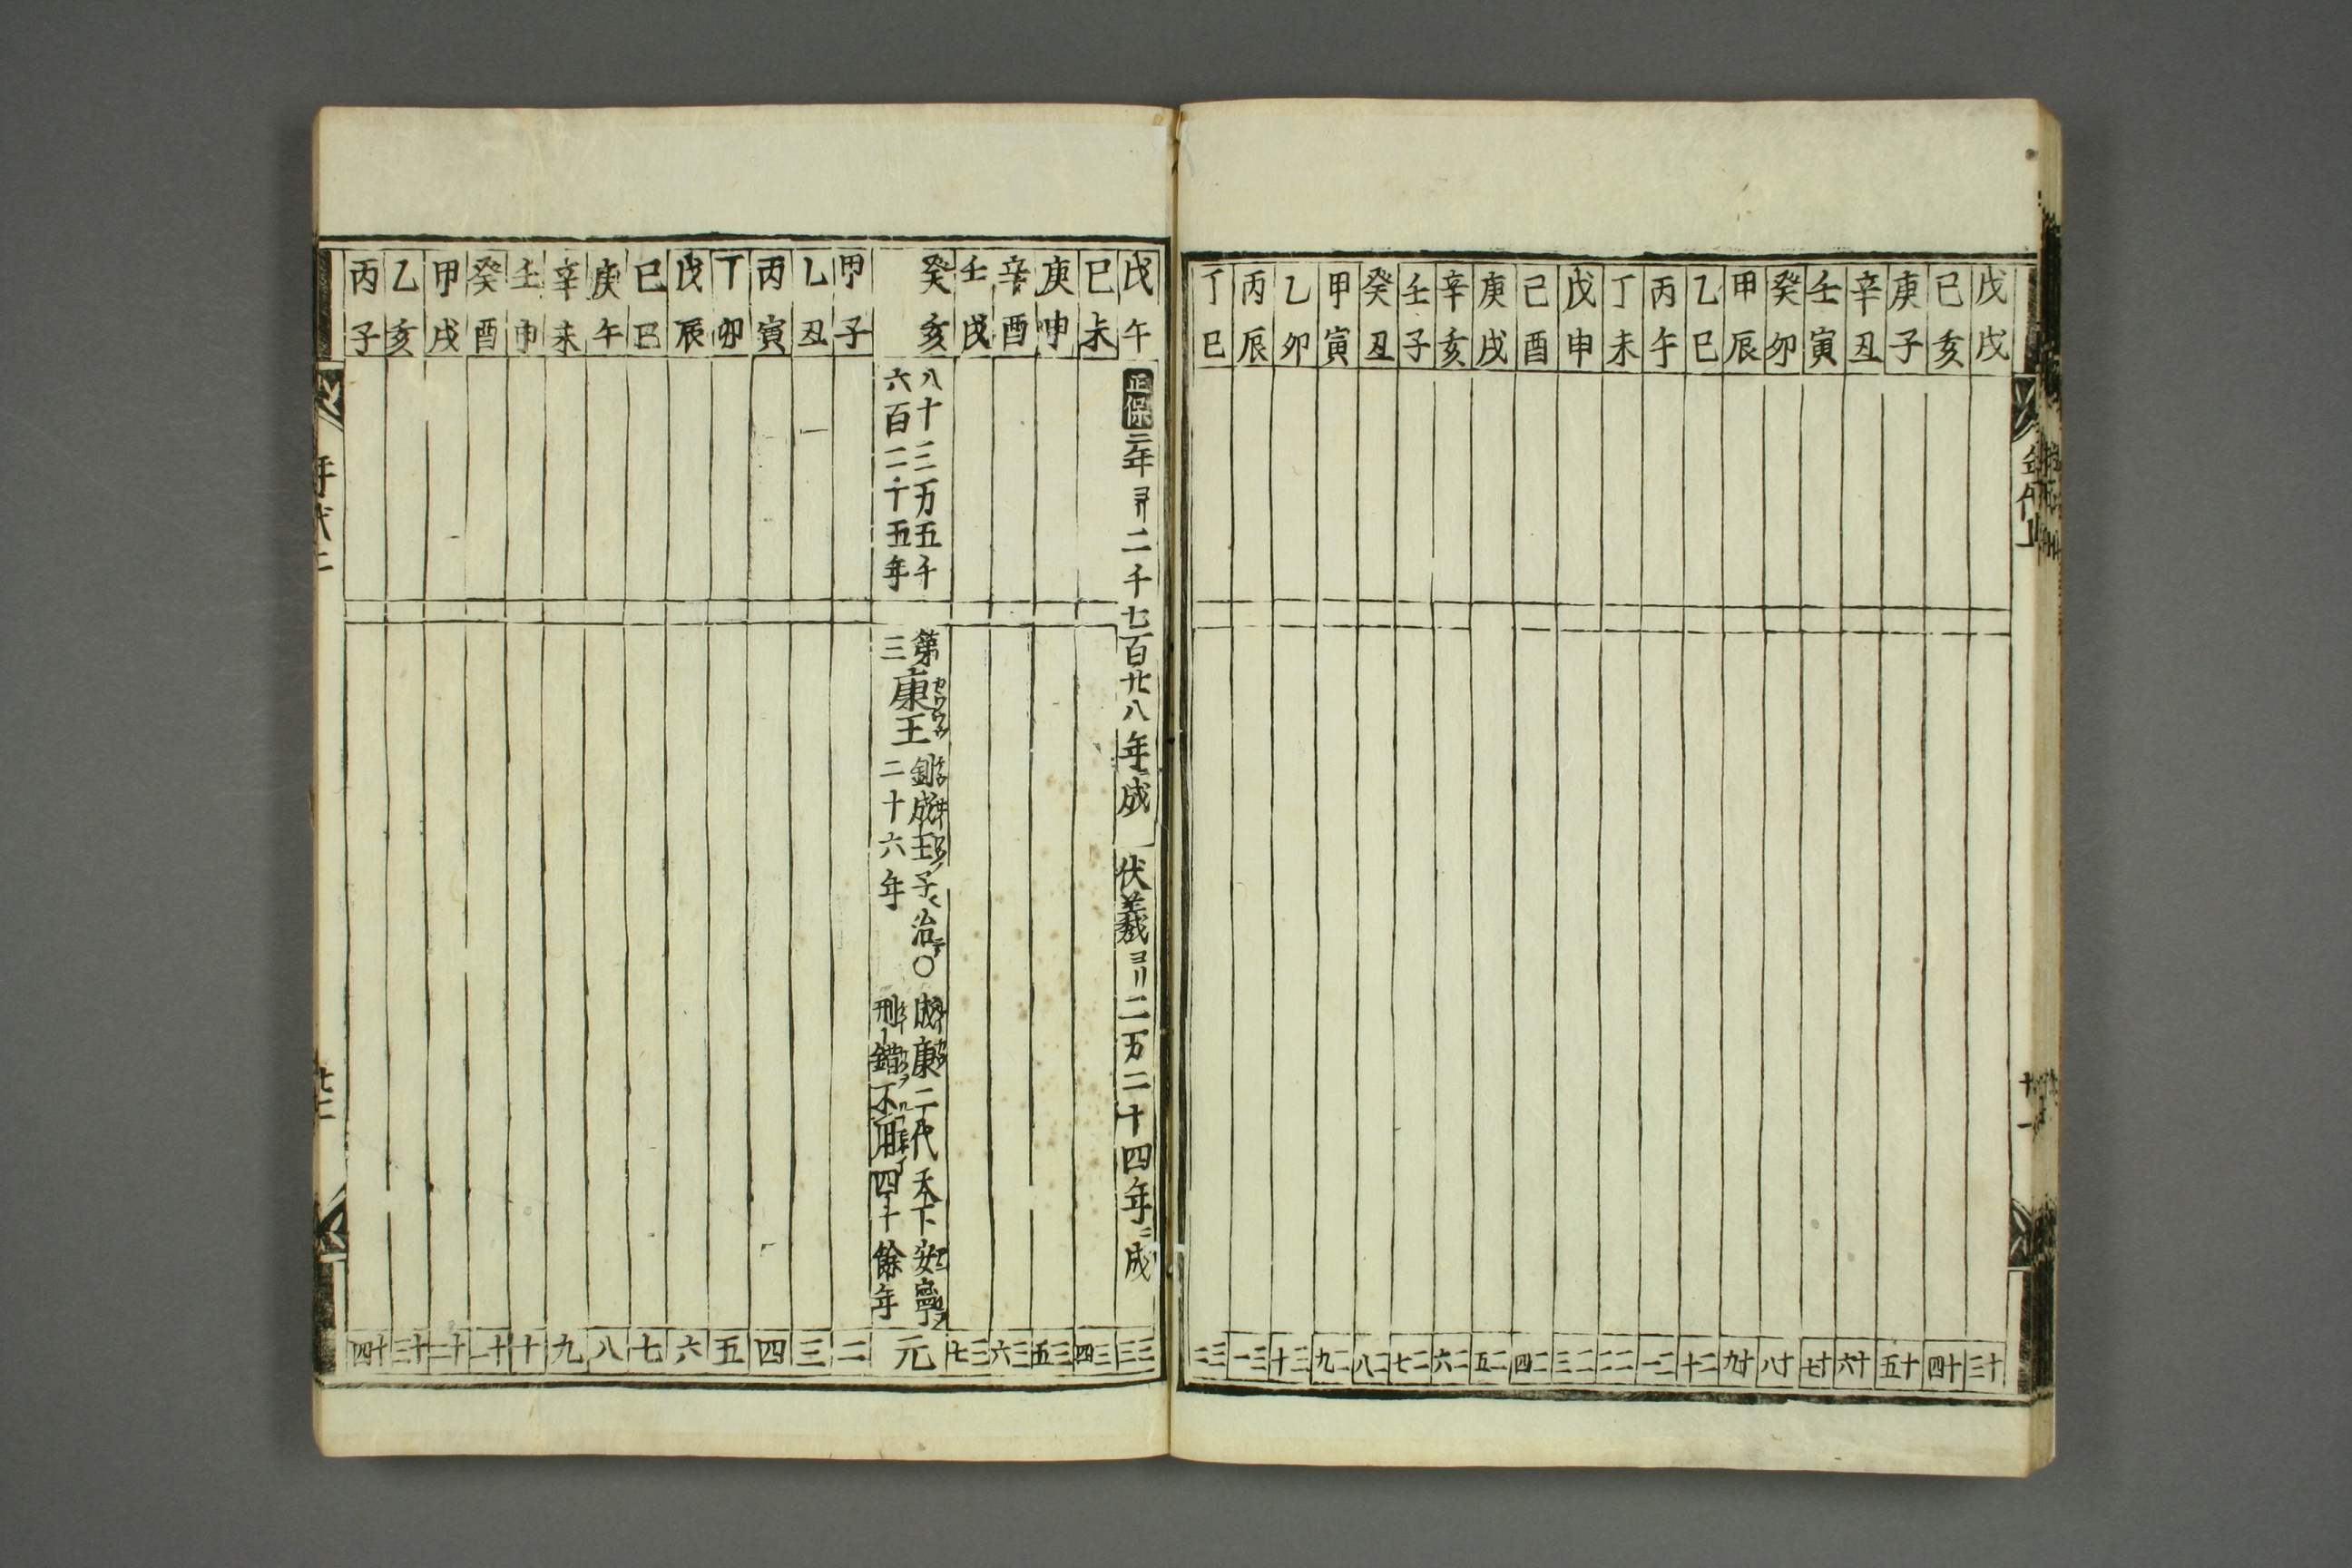 戊戌 十三
己亥 十四
庚子 十五
辛丑 十六
壬寅 十七
癸卯 十八
甲辰 十九
乙巳 二十
丙午 二一
丁未 二二
戊申 二三
己酉 二四
庚戌 二五
辛亥 二六
壬子 二七
癸丑 二八
甲寅 二九
乙卯 三十
丙辰 三一
丁巳 三二
戊午 正保二年ヨリ二千七百廿八年成 伏羲ヨリ二万二十四年ニ成 三三
己未 三四
庚申 三五
辛酉 三六
壬戌 三七
癸亥 八十三万五千
六百二十五年
第三康王 釗成王ノ子治
二十六年
〇成康二代天下安寧
刑錯不用四十餘年
元
甲子 二
乙丑 三
丙寅 四
丁卯 五
戊辰 六
己巳 七
庚午 八
辛未 九
壬申 十
癸酉 十一
甲戌 十二
乙亥 十三
丙子 十四